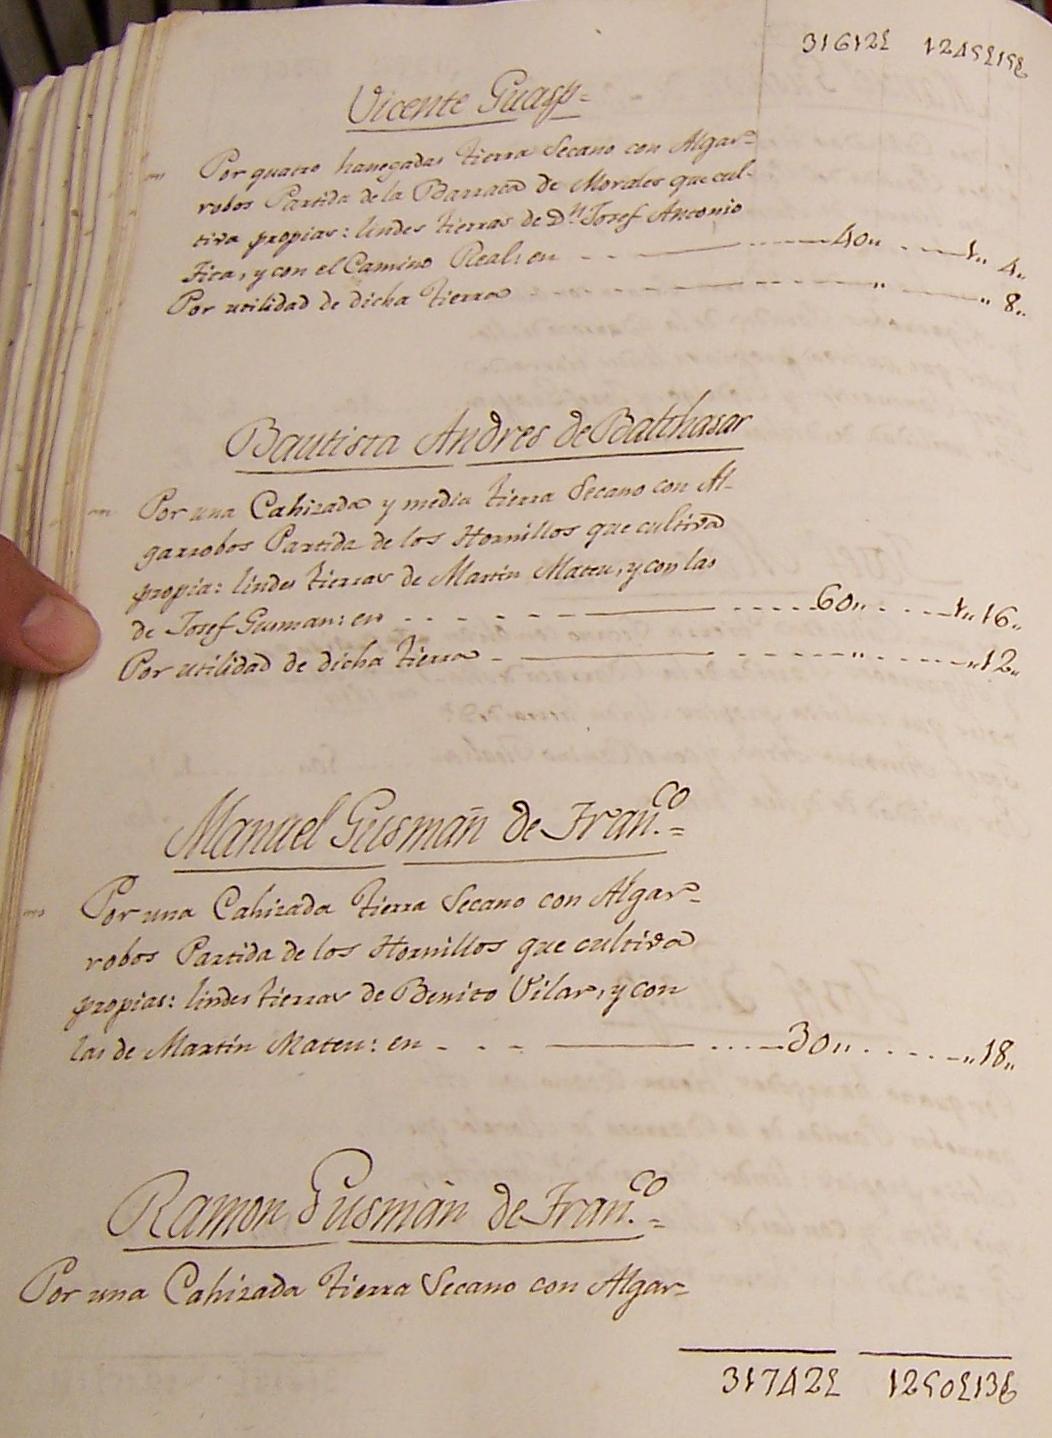 31612£ 1245£15
Vicente Guasp=
Por quatro hanegadas tierra Secano con Algar=
robos Partida de la Barraca de Morales que cul-
tiva propias: lindes tierras de Dn. Josef Antonio
Fica, y con el Camino Real: en 40,, 1,, 4,,
Por utilidad de dicha tierra ,, ,, 8,,
Bautista Andres de Balthasar
Por una Cahizada y media tierra Secano con Al-
garrobos Partida de los Hornillos que cultiva
propia: lindes tierras de Martin Mateu, y con las
de Josef Gusman: en 60,, 1,, 16,,
Por utilidad de dicha tierra ,, ,, 12,,
Manuel Gusmán de Fran.co =
Por una Cahizada tierra Secano con Algar=
robos Partida de los Hornillos que cultiva
propias: lindes tierras de Benito Vilar, y con
las de Martin Mateu: en 30,, ,, 18,,
Ramon Gusmán de Fran.co =
Por una Cahizada tierra Secano con Algar=
31742£ 1250£13